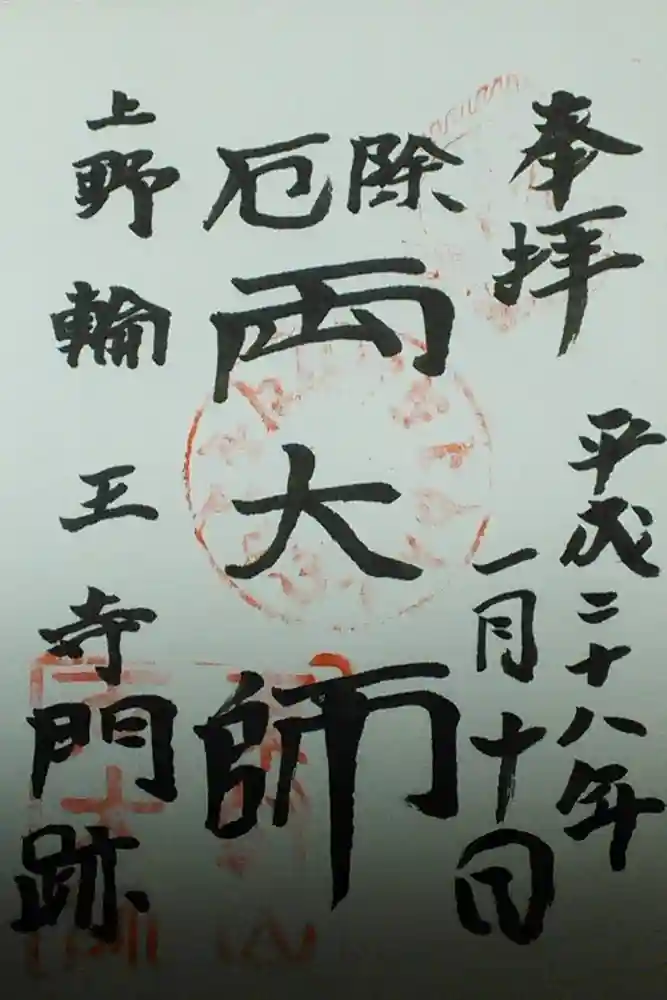 奉拝
平成二十八年
一月十日
除厄
両大師
上野輪王寺門跡